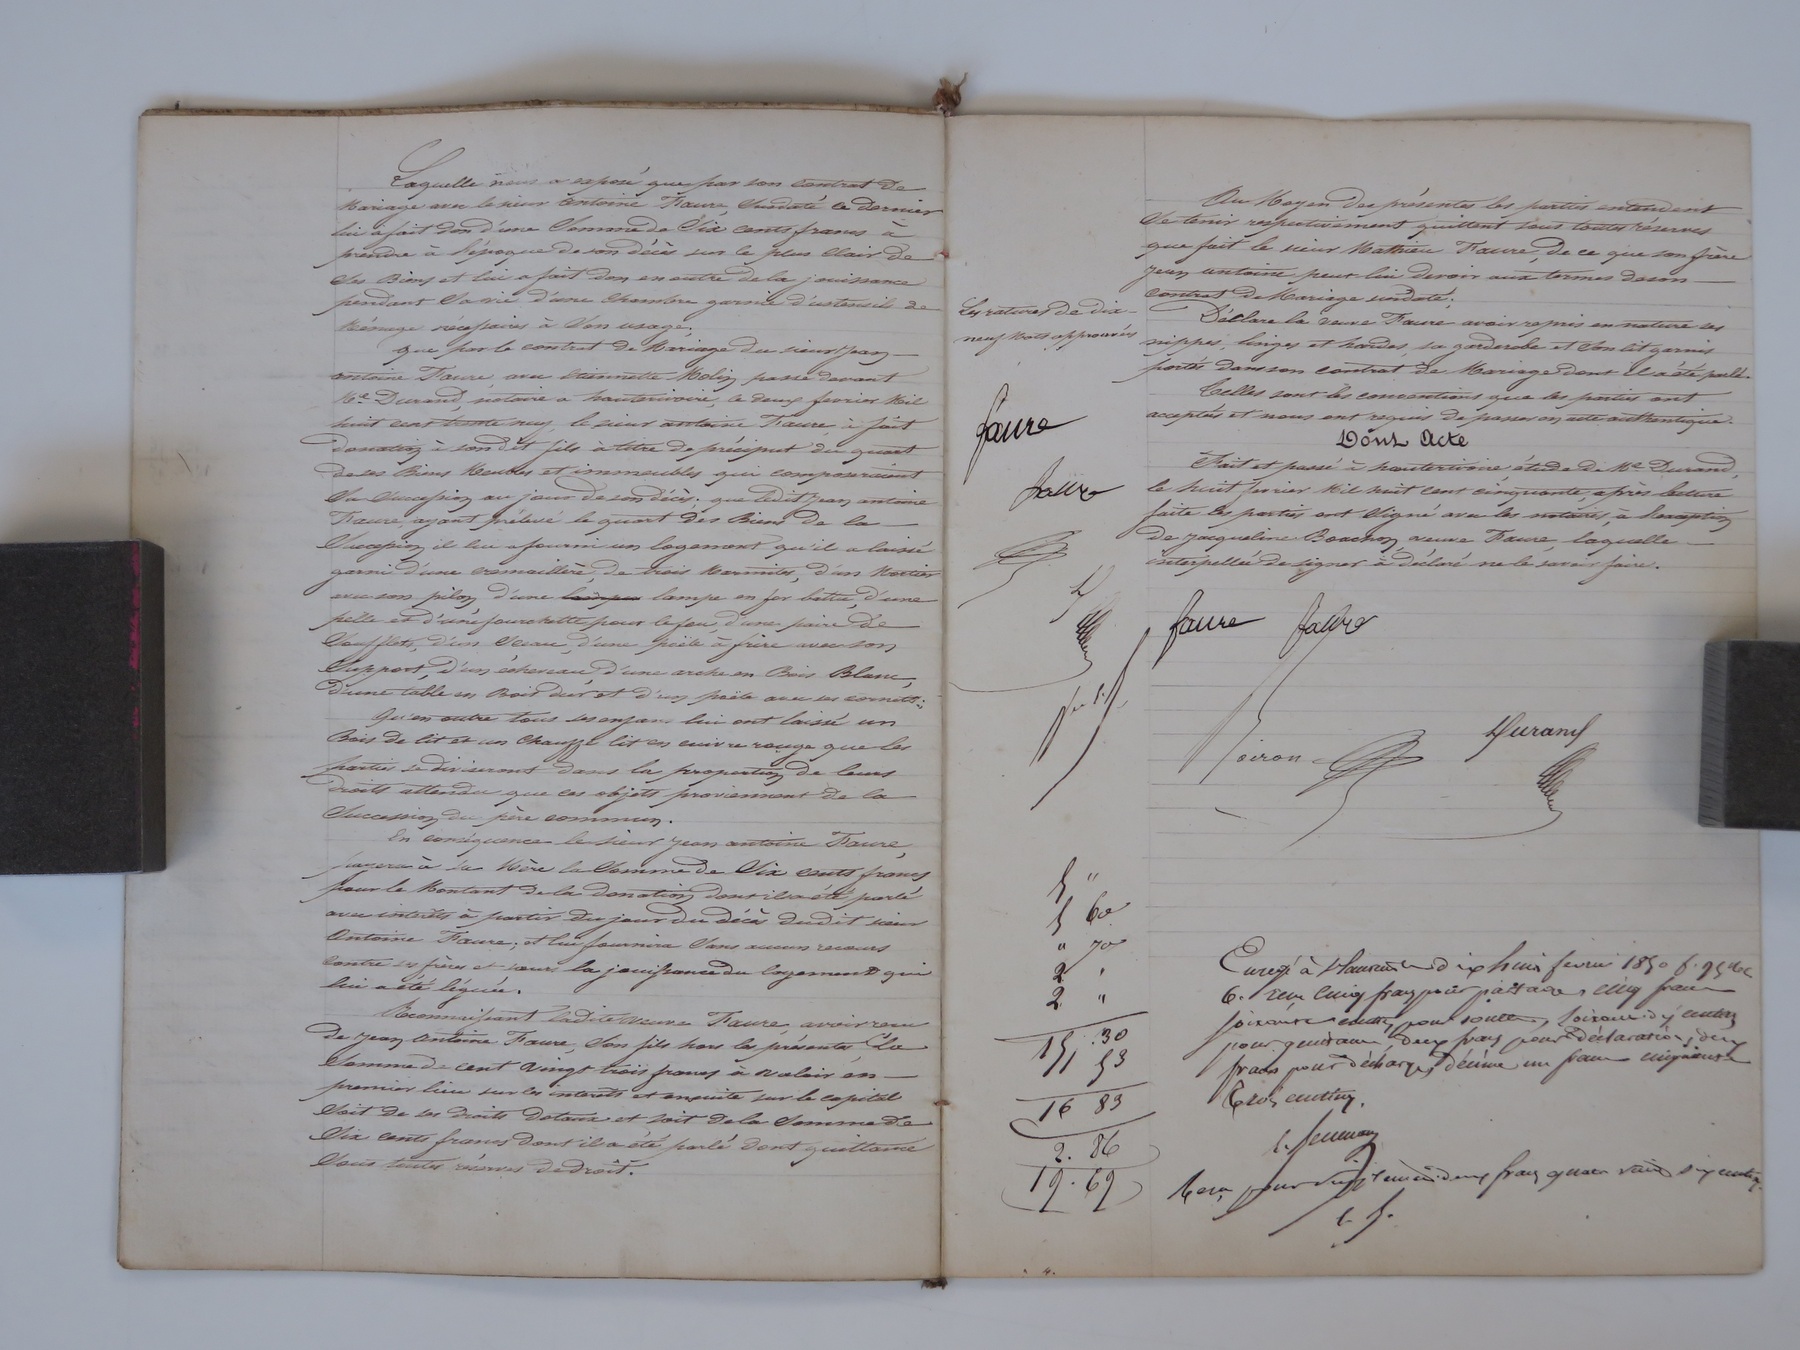 Laquelle nous a exposé que par son contrat de
Mariage avec le sieur Antoine Faure, susdaté ce dernier
lui a fait don d'une Somme de Six cents francs à
prendre à l'époque de son décès sur le plus clair de
ses Biens et lui a fait don en outre de la jouissance
pendant sa vie d'une chambre garnie d'ustensils de
Ménage nécessaires à son usage.
que par le contrat de Mariage du sieur Jean
antoine Faure avec Etiennette Molin passé devant
Me Durand, notaire a hauterivoire, le deux fevrier Mil
huit cent trente neuf, le sieur antoine Faure a fait
donation à son dit fils à titre de préciput du quart
de ses Biens Meubles et immeubles qui composeraient
Sa Succession au jour de son décès. que ledit Jean antoine
Faure, ayant prélevé le quart des Biens de la
Succession il lui a fourni un logement qu'il a laissé
garni d'une cremaillère, de trois Marmites, d'un Mortier
avec son pilon, d'une lampe en fer battu, d'une
pelle et d'une fourchette pour le feu, d'une paire de
Soufflets, d'un Seau, d'une poële à frire avec son
Support, d'un écheveau, d'une arche en Bois Blanc,
d'une table en Bois dur et d'un poële avec ses cornets;
Qu'en outre tous ses enfans lui ont laissé un
Bois de lit et un Chauffe lit en cuivre rouge que les
parties se diviseront dans la proportion de leurs
droits attendu que ces objets proviennent de la
Succession du père commun.
En conséquence le sieur Jean antoine Faure,
payera à sa Mère la Somme de Six cents francs
pour le Montant de la donation dont il a été parlé
avec intérêts à partir du jour du décès dudit sieur
Antoine Faure; et lui fournira Sans aucun recours
contre ses frères et sœurs la jouissance du logement qui
lui a été léguée.
Reconnaissant ladite veuve Faure, avoir reçu
de Jean Antoine Faure, Son fils hors les présentes La
Somme de cent vingt trois francs à valoir en
premier lieu sur les intérêts et ensuite sur le capital
Soit de ses droits dotaux et soit de la Somme de
Six cents francs dont il a été parlé dont quittance
Sous toutes réserves de droit.
Au Moyen des présentes les parties entendent
Se tenir respectivement quittent sous toutes réserves
que fait le sieur Mathieu Faure, de ce que son frère
Jean antoine peut lui devoir aux termes de son
contrat de Mariage susdaté.
Déclare la veuve Faure avoir repris en nature ses
nippes, linges et hardes, sa garderobe et Son lit garnis
portés dans son contrat de Mariage dont il a été parlé.
Telles sont les conventions que les parties ont
acceptés et nous ont requis de passer en acte authentique.
Dont Acte
Fait et passé à hauterivoire étude de Me Durand,
le huit fevrier Mil huit cent cinquante, après lecture
faite les parties ont Signé avec les notaires, à l'exception
de Jacqueline Bouchon veuve Faure laquelle
interpellée de signer a déclaré ne le savoir faire.
Les ratures de dix-
neuf Mots approuvées
faure
faure
faure faure
Durand
5 "
5 60
" 70
2 "
2 "
15 30
1 53
16 83
2. 86
19. 69
Enregé à St Laurent le dix huit fevrier 1850 f. 95
6. reçu cinq francs pour partage, cinq francs
soixante centes pour soulte, soixante dix centes
pour quittance, deux francs pour déclaration, deux
francs pour décharge, décime un franc cinquante
trois centimes.